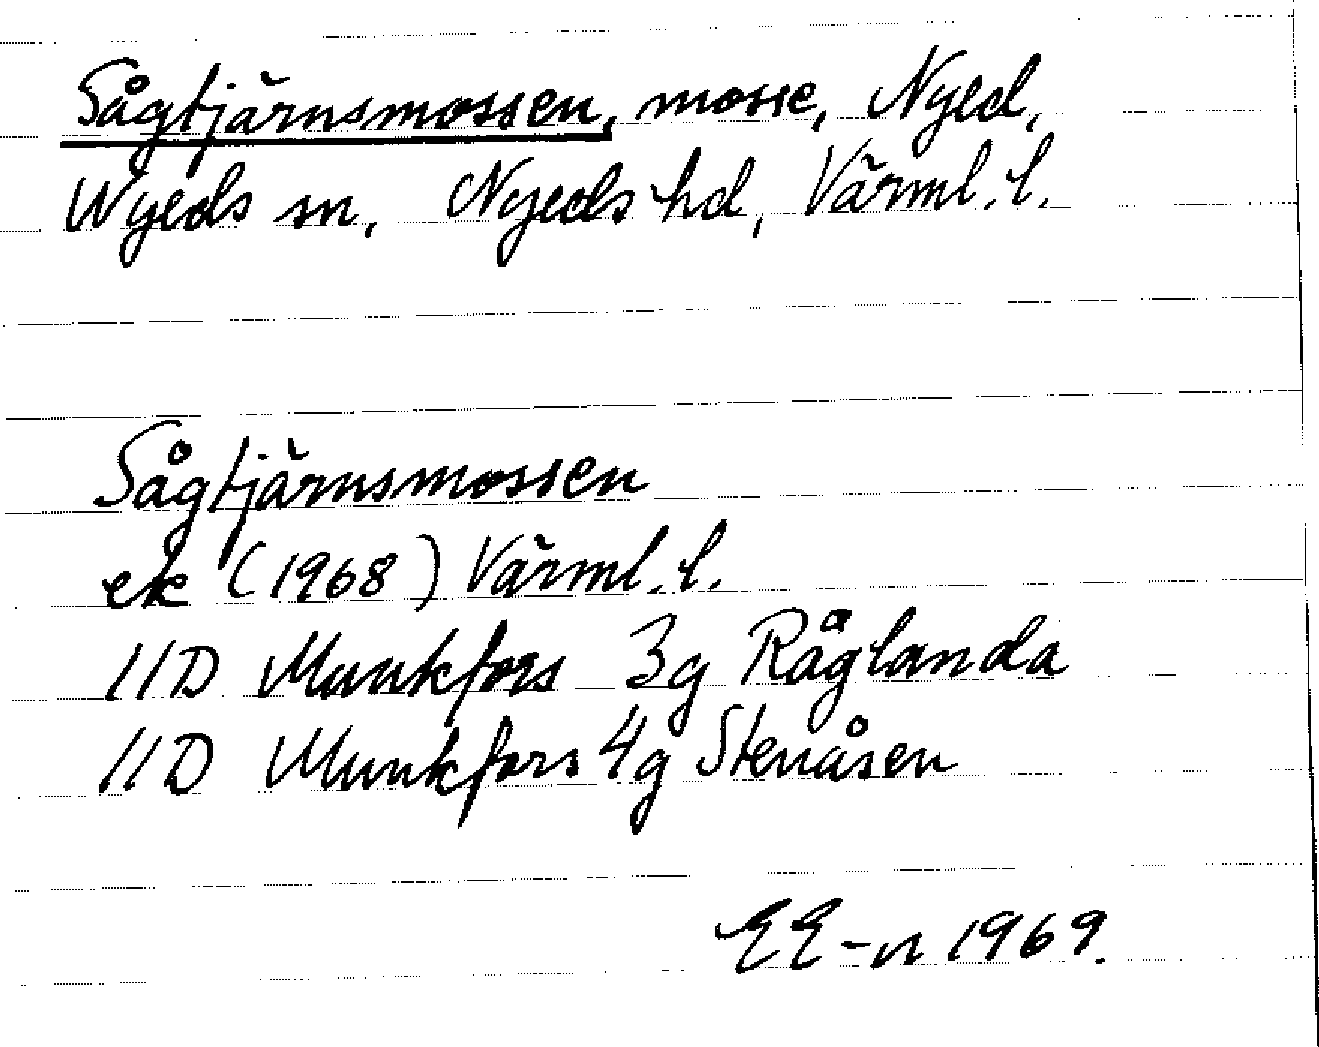 Sågtjärnsmossen, mosse, Nyed,
Nyeds sn, Nyeds hd, Värml. l.
Sågtjärnsmossen
ek (1968) Värml. l.
11D Munkfors 3g Råglanda
11D Munkfors 4g Stenåsen
EE-n 1969.